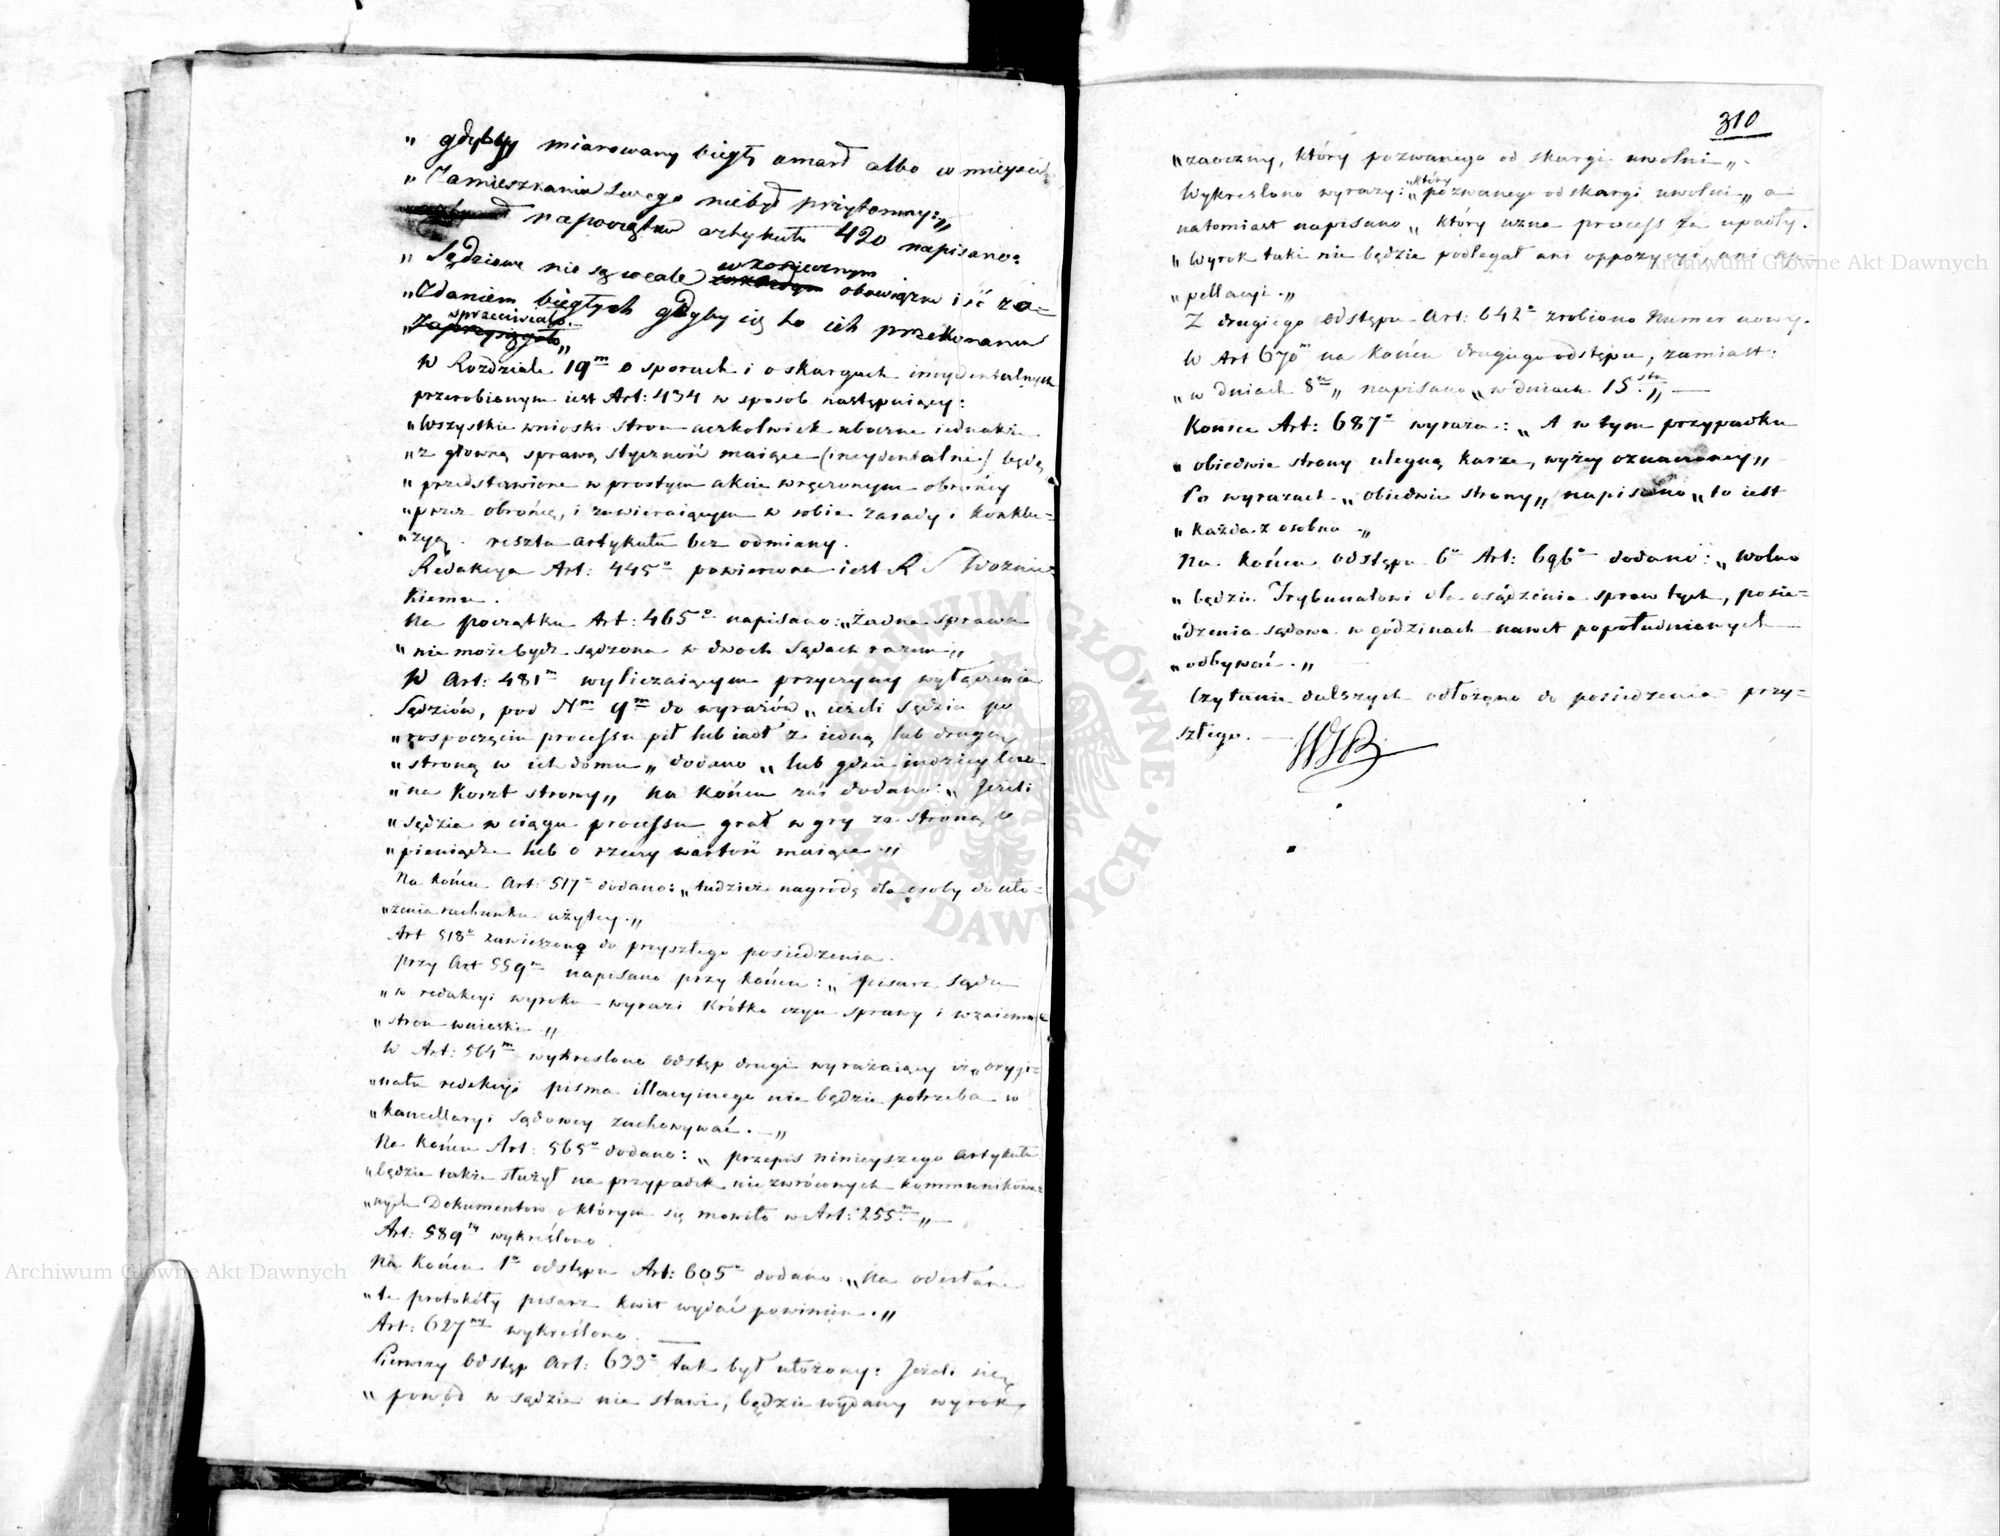 „ gdyby mianowany biegły umarł albo w mieyscu
„ Zamieszkania swego niebył przytomny:„
na początku artykułu 420 napisano:
„ Sędziowie nie są wcale obowiązani iść za
„ Zdaniem biegłych gdyby się to ich przekonaniu
sprzeciwiało.„
W Rozdziale 19m o sporach i o skargach incydentalnych
przerobionym iest Art: 434 w sposob następuiący:
„ Wszystkie wnioski stron aczkolwiek uboczne iednakże
„ z główną sprawą styczność maiące (incydentalne) będą
„ przedstawione w prostym akcie wręczonym obrońcy
„ przez obrońcę, i zawieraiącym w sobie zasady i konklu=
„ zyą. reszta artykułu bez odmiany.
Redakcya Art: 445o powierzona iest R S Woźnic=
kiemu.
Na początku Art: 465o napisano: „Żadna sprawa
„ nie może bydź sądzona w dwoch Sądach razem„
W Art: 481m wyliczaiącym przyczyny wyłączenia
Sędziów, pod Nm 9m do wyrazów „ ieżeli Sędzia po
„ rospoczęciu processu pił lub iadł z iedną lub drugą
„ stroną w ich domu„ dodano „ lub gdzie indziey lecz
„ na koszt strony„ na końcu zaś dodano: „ Jeżeli
„ Sędzia w ciągu processu grał w gry ze stroną o
„ pieniądze lub o rzeczy wartość maiące.„
Na końcu Art: 517o dodano: „tudzież nagrodę dla osoby do uło=
„żenia rachunku użytey.„
Art 518o zawieszono do przyszłego posiedzenia.
przy Art 559m napisano przy końcu: „ pisarz Sądu
„ w redakcyi wyroku wyrazi krótko czyn sprawy i wzaiemne
„ stron wnioski.„
W Art: 564m wykreślono odstęp drugi wyrażaiący iż „oryji=
„nału redakcyi pisma illacyinego nie będzie potrzeba w
„kancellaryi Sądowey zachowywać. —„
Na końcu Art: 565o dodano: „ przepis ninieyszego artykułu
„będzie także służył na przypadek niezwróconych kommunikowa=
„nych Dokumentow o którym się mowiło w Art: 255m.„—
Art: 589ty wykreślono.
Na końcu 1o odstępu Art: 605o dodano: „Na odesłane
„te protokóły pisarz kwit wydać powinien.„
Art: 627my wykreślono. —
Pierwszy odstęp Art: 633o tak był ułożony: Jeżeli się
„ powód w sądzie nie stawi, będzie wydany wyrok
310
„zaoczny, który pozwanego od skargi uwolni„.
Wykreślono wyrazy: „który pozwanego od skargi uwolni„ a
natomiast napisano „ który uzna process za upadły.
„ Wyrok taki nie będzie podlegał ani oppozycyi, ani ap=
„ pellacyi.„
Z drugiego odstępu Art: 642o zrobiono Numer nowy.
W Art 670m na końcu drugiego odstępu, zamiast:
„ w dniach 8iu„ napisano „w dniach 15stu.„ —
Koniec Art: 687o wyraża: „ A w tym przypadku
„ obiedwie strony ulegną karze, wyżey oznaczoney„
Po wyrazach „ obiedwie strony„ napisano „ to iest
„ każda z osobna.„
Na końcu odstępu 6o Art: 696o dodano: „ wolno
„ będzie Trybunałowi dla osądzenia spraw tych, posie=
„dzenia sądowe w godzinach nawet popołudniowych
„ odbywać.„
Czytanie dalszych odłożono do posiedzenia przy=
szłego. —
Archiwum Główne Akt Dawnych
Archiwum Główne Akt Dawnych
ARCHIWUM GŁÓWNE · AKT DAWNYCH ·